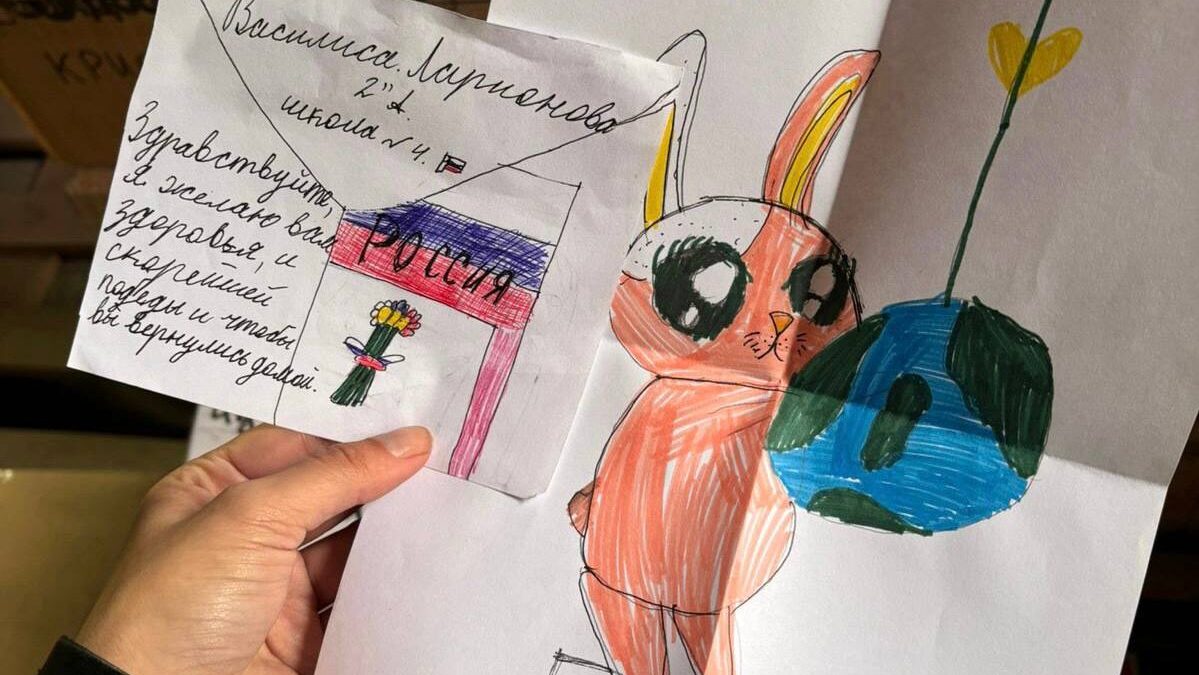 Василиса Ларионова
2 "А
школа № 4.
Здравствуйте,
я желаю вам
здоровья, и
скорейшей
победы и чтобы
вы вернулись домой.
РОССИЯ
КРИ